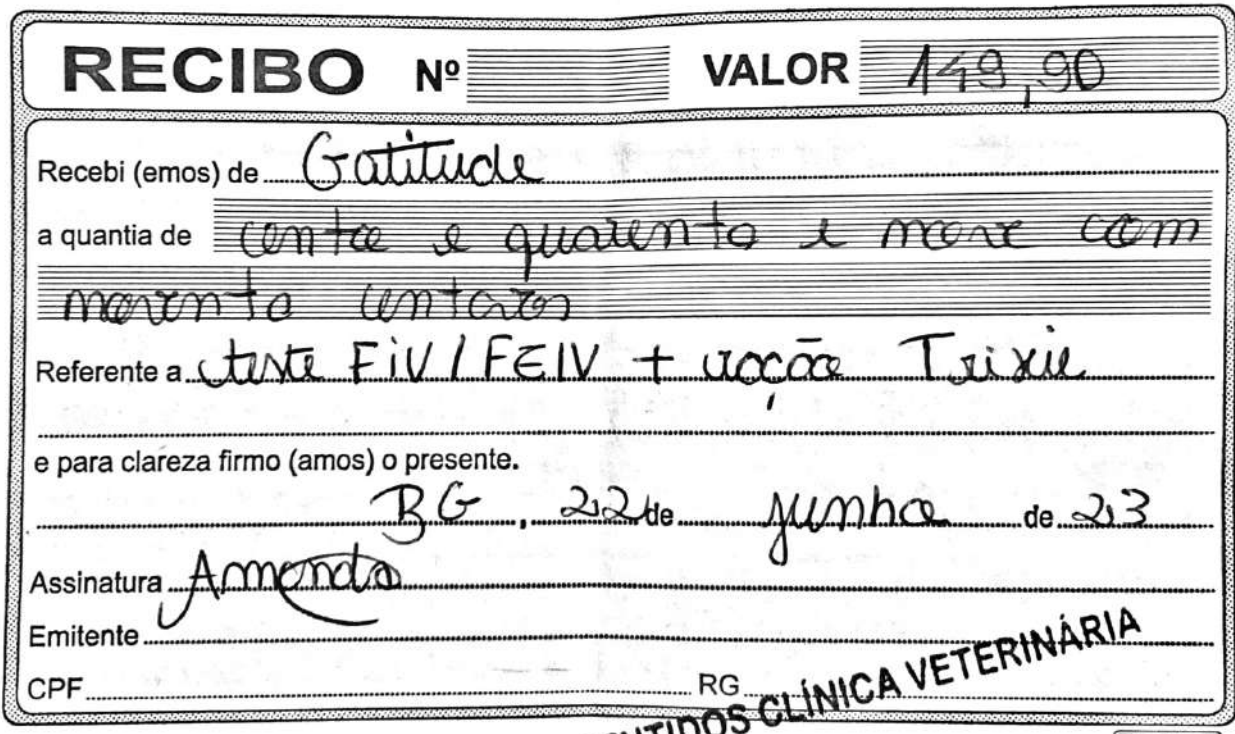 RECIBO Nº VALOR 149,90
Recebi (emos) de Gatitude
a quantia de cento e quarenta e nove com
noventa centavos
Referente a teste FIV / FELV + ração Trixie
e para clareza firmo (amos) o presente.
BG, 22 de junho de 23
Assinatura Amanda
Emitente
CPF RG
CLÍNICA VETERINÁRIA